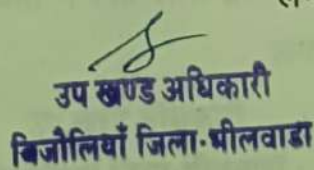 उप खण्ड अधिकारी
बिजौलियाँ जिला-भीलवाडा